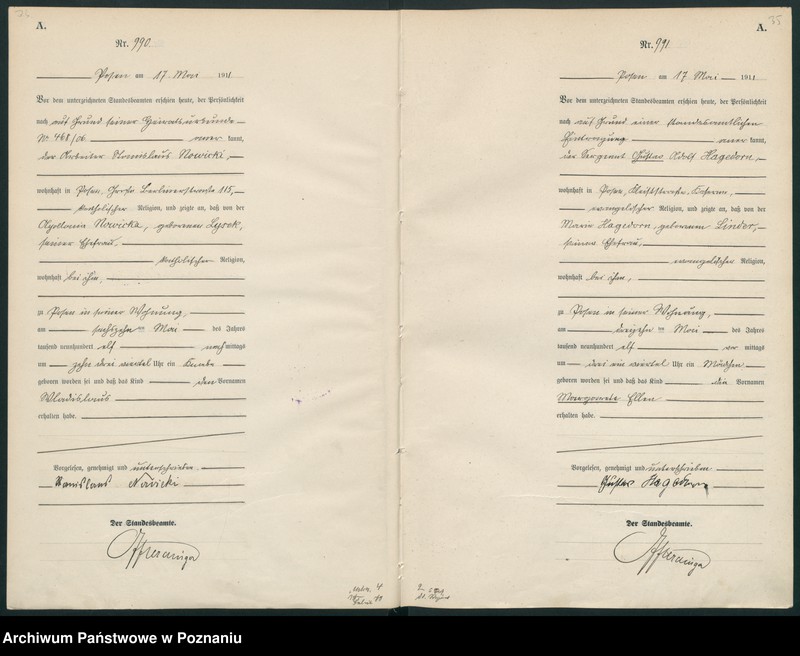 A.
Nr. 990.
Posen am 17. Mai 1911
Vor dem unterzeichneten Standesbeamten erschien heute, der Persönlichkeit
nach auf Grund seiner Heiratsurkunde
Nr. 468/06 kannt,
der Arbeiter Stanislaus Nowicki,
wohnhaft in Posen, Große Berlinerstraße 115,
katholischer Religion, und zeigte an, daß von der
Nowicka, geborenen
seiner Ehefrau,
katholischer Religion,
wohnhaft bei ihm,
zu Posen in seiner Wohnung,
am sechszehnten Mai des Jahres
tausend neunhundert elf nachmittags
um zehn drei viertel Uhr ein Knabe
geboren worden sei und daß das Kind den Vornamen
Wladislaus
erhalten habe.
Vorgelesen, genehmigt und unterschrieben.
Stanislaus Nowicki
Der Standesbeamte.
A.
35
Nr. 991.
Posen am 17. Mai 1911
Vor dem unterzeichneten Standesbeamten erschien heute, der Persönlichkeit
nach auf Grund einer standesamtlichen
Eintragung kannt,
der Sergeant Gustav Adolf Hagedorn,
wohnhaft in Posen, Kaserne,
evangelischer Religion, und zeigte an, daß von der
Marie Hagedorn, geborenen Linder,
seiner Ehefrau,
evangelischer Religion,
wohnhaft bei ihm,
zu Posen in seiner Wohnung,
am dreizehnten Mai des Jahres
tausend neunhundert elf vormittags
um drei ein viertel Uhr ein Mädchen
geboren worden sei und daß das Kind die Vornamen
Margarete Ellen
erhalten habe.
Vorgelesen, genehmigt und unterschrieben
Gustav Hagedorn
Der Standesbeamte.
Archiwum Państwowe w Poznaniu